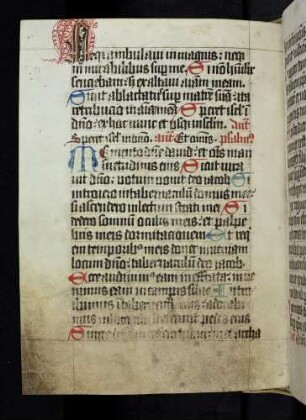 Neq ambulaui in magnis: neq
in mirabilibus sup me. Si nō humilit̄
sentiebam: s; exaltaui aīam meam.
Sicut ablactat᷒ sup matre sua: ita
retributio in aīa mea. Speret isrl̄ ī
dn̄o: ex hoc nunc et usq in sclm̄. Añ.
Speret isrl̄ in dn̄o. añ. Et om̄is. psalm᷒
Memento dn̄e dauid: et oīs man
suetudinis eius. Sicut iura
uit dn̄o: uotum uouit deo iacob. Si
introiero in tabernaculū domus mee:
si ascendero in lectum strati mei. Si
dedero somnum oculis meis: et palpe
bris meis dormitationem. Et req
em temporibȝ meis donec inueniam
locum dn̄o: tabernaculū deo iacob.
Ecce audiuimus eam in effrata: inue
nimus eam in campis silue. Introi
bimus in tabernaculū
in loco ubi steterunt pedes eius
Surge archa